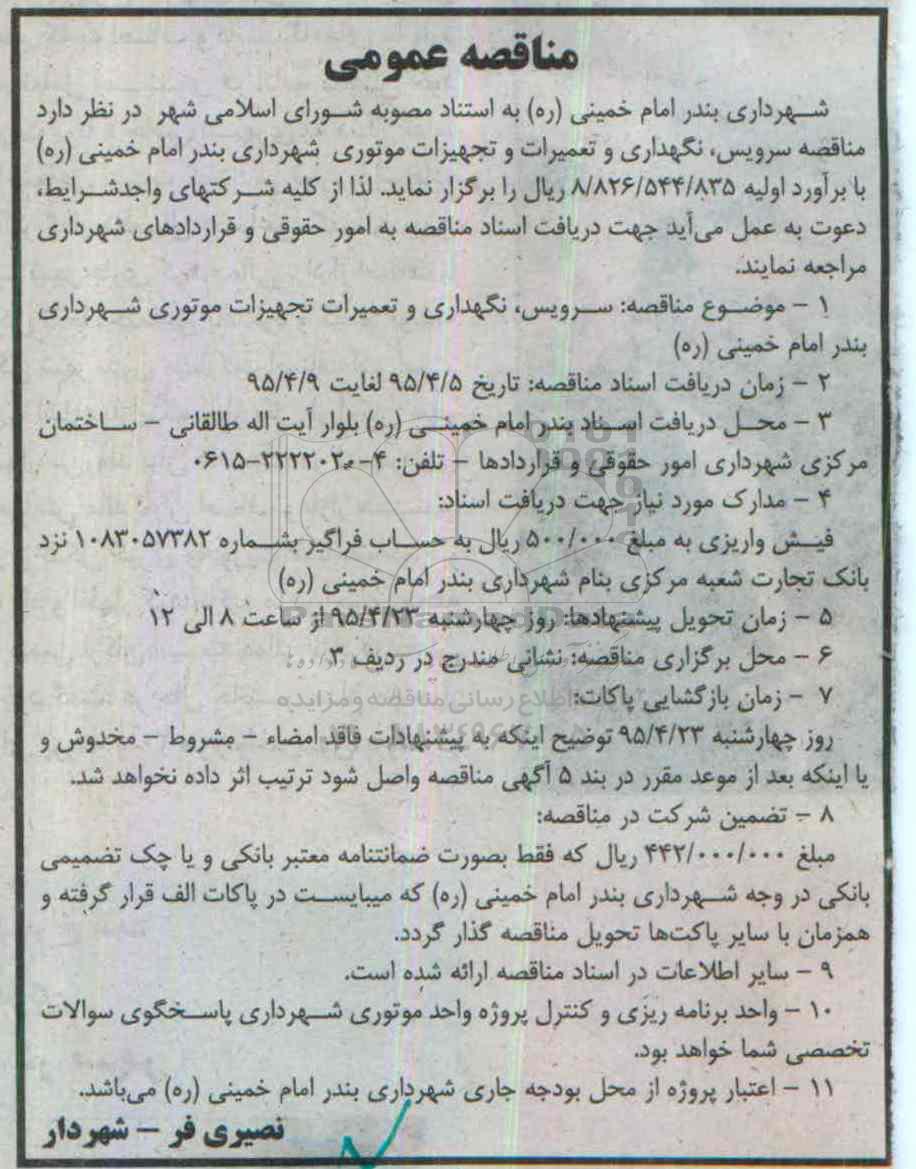 مناقصه عمومی
شهرداری بندر امام خمینی (ره) به استناد مصوبه شورای اسلامی شهر در نظر دارد
مناقصه سرویس، نگهداری و تعمیرات و تجهیزات موتوری شهرداری بندر امام خمینی (ره)
با برآورد اولیه ۸/۸۲۶/۵۴۴/۸۳۵ ریال را برگزار نماید. لذا از کلیه شرکتهای واجدشرایط،
دعوت به عمل می‌آید جهت دریافت اسناد مناقصه به امور حقوقی و قراردادهای شهرداری
مراجعه نمایند.
۱ – موضوع مناقصه: سرویس، نگهداری و تعمیرات تجهیزات موتوری شهرداری
بندر امام خمینی (ره)
۲ – زمان دریافت اسناد مناقصه: تاریخ ۹۵/۴/۵ لغایت ۹۵/۴/۹
۳ – محل دریافت اسناد بندر امام خمینی (ره) بلوار آیت اله طالقانی – ساختمان
مرکزی شهرداری امور حقوقی و قراردادها – تلفن: ۴-۰۶۱۵-۲۲۲۲۰۲۰
۴ – مدارک مورد نیاز جهت دریافت اسناد:
فیش واریزی به مبلغ ۵۰۰/۰۰۰ ریال به حساب فراگیر بشماره ۱۰۸۳۰۵۷۳۸۲ نزد
بانک تجارت شعبه مرکزی بنام شهرداری بندر امام خمینی (ره)
۵ – زمان تحویل پیشنهادها: روز چهارشنبه ۹۵/۴/۲۳ از ساعت ۸ الی ۱۲
۶ – محل برگزاری مناقصه: نشانی مندرج در ردیف ۳
۷ – زمان بازگشایی پاکات:
روز چهارشنبه ۹۵/۴/۲۳ توضیح اینکه به پیشنهادات فاقد امضاء – مشروط – مخدوش و
یا اینکه بعد از موعد مقرر در بند ۵ آگهی مناقصه واصل شود ترتیب اثر داده نخواهد شد.
۸ – تضمین شرکت در مناقصه:
مبلغ ۴۴۲/۰۰۰/۰۰۰ ریال که فقط بصورت ضمانتنامه معتبر بانکی و یا چک تضمیمی
بانکی در وجه شهرداری بندر امام خمینی (ره) که میبایست در پاکات الف قرار گرفته و
همزمان با سایر پاکت‌ها تحویل مناقصه گذار گردد.
۹ – سایر اطلاعات در اسناد مناقصه ارائه شده است.
۱۰ – واحد برنامه ریزی و کنترل پروژه واحد موتوری شهرداری پاسخگوی سوالات
تخصصی شما خواهد بود.
۱۱ – اعتبار پروژه از محل بودجه جاری شهرداری بندر امام خمینی (ره) می‌باشد.
نصیری فر – شهردار